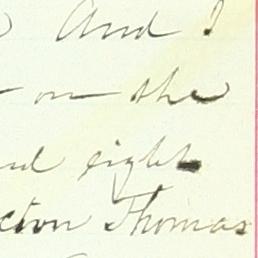 And
on the
nd eight
cton Thomas